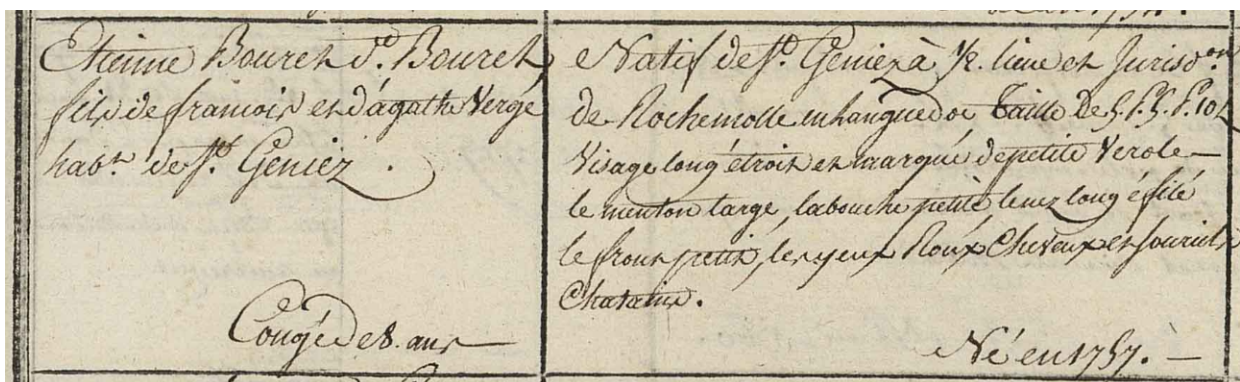 Etienne Bouret d.t Bouret,
fils de francois et d'agathe Vergé
hab.nt de S.t Geniez.
Congé de 8. ans
Natif de S.t Geniez à 1/2. lieue et Jurisd.on
de Rochemolle en Languedoc taille De 5. P. 5. P. 10 L
Visage long étroit et marqué de petite Verole
le menton large, la bouche petite le nez long éfilé
le front petit, les yeux Roux Cheveux et sourcils
Chatains.
Né en 1757.